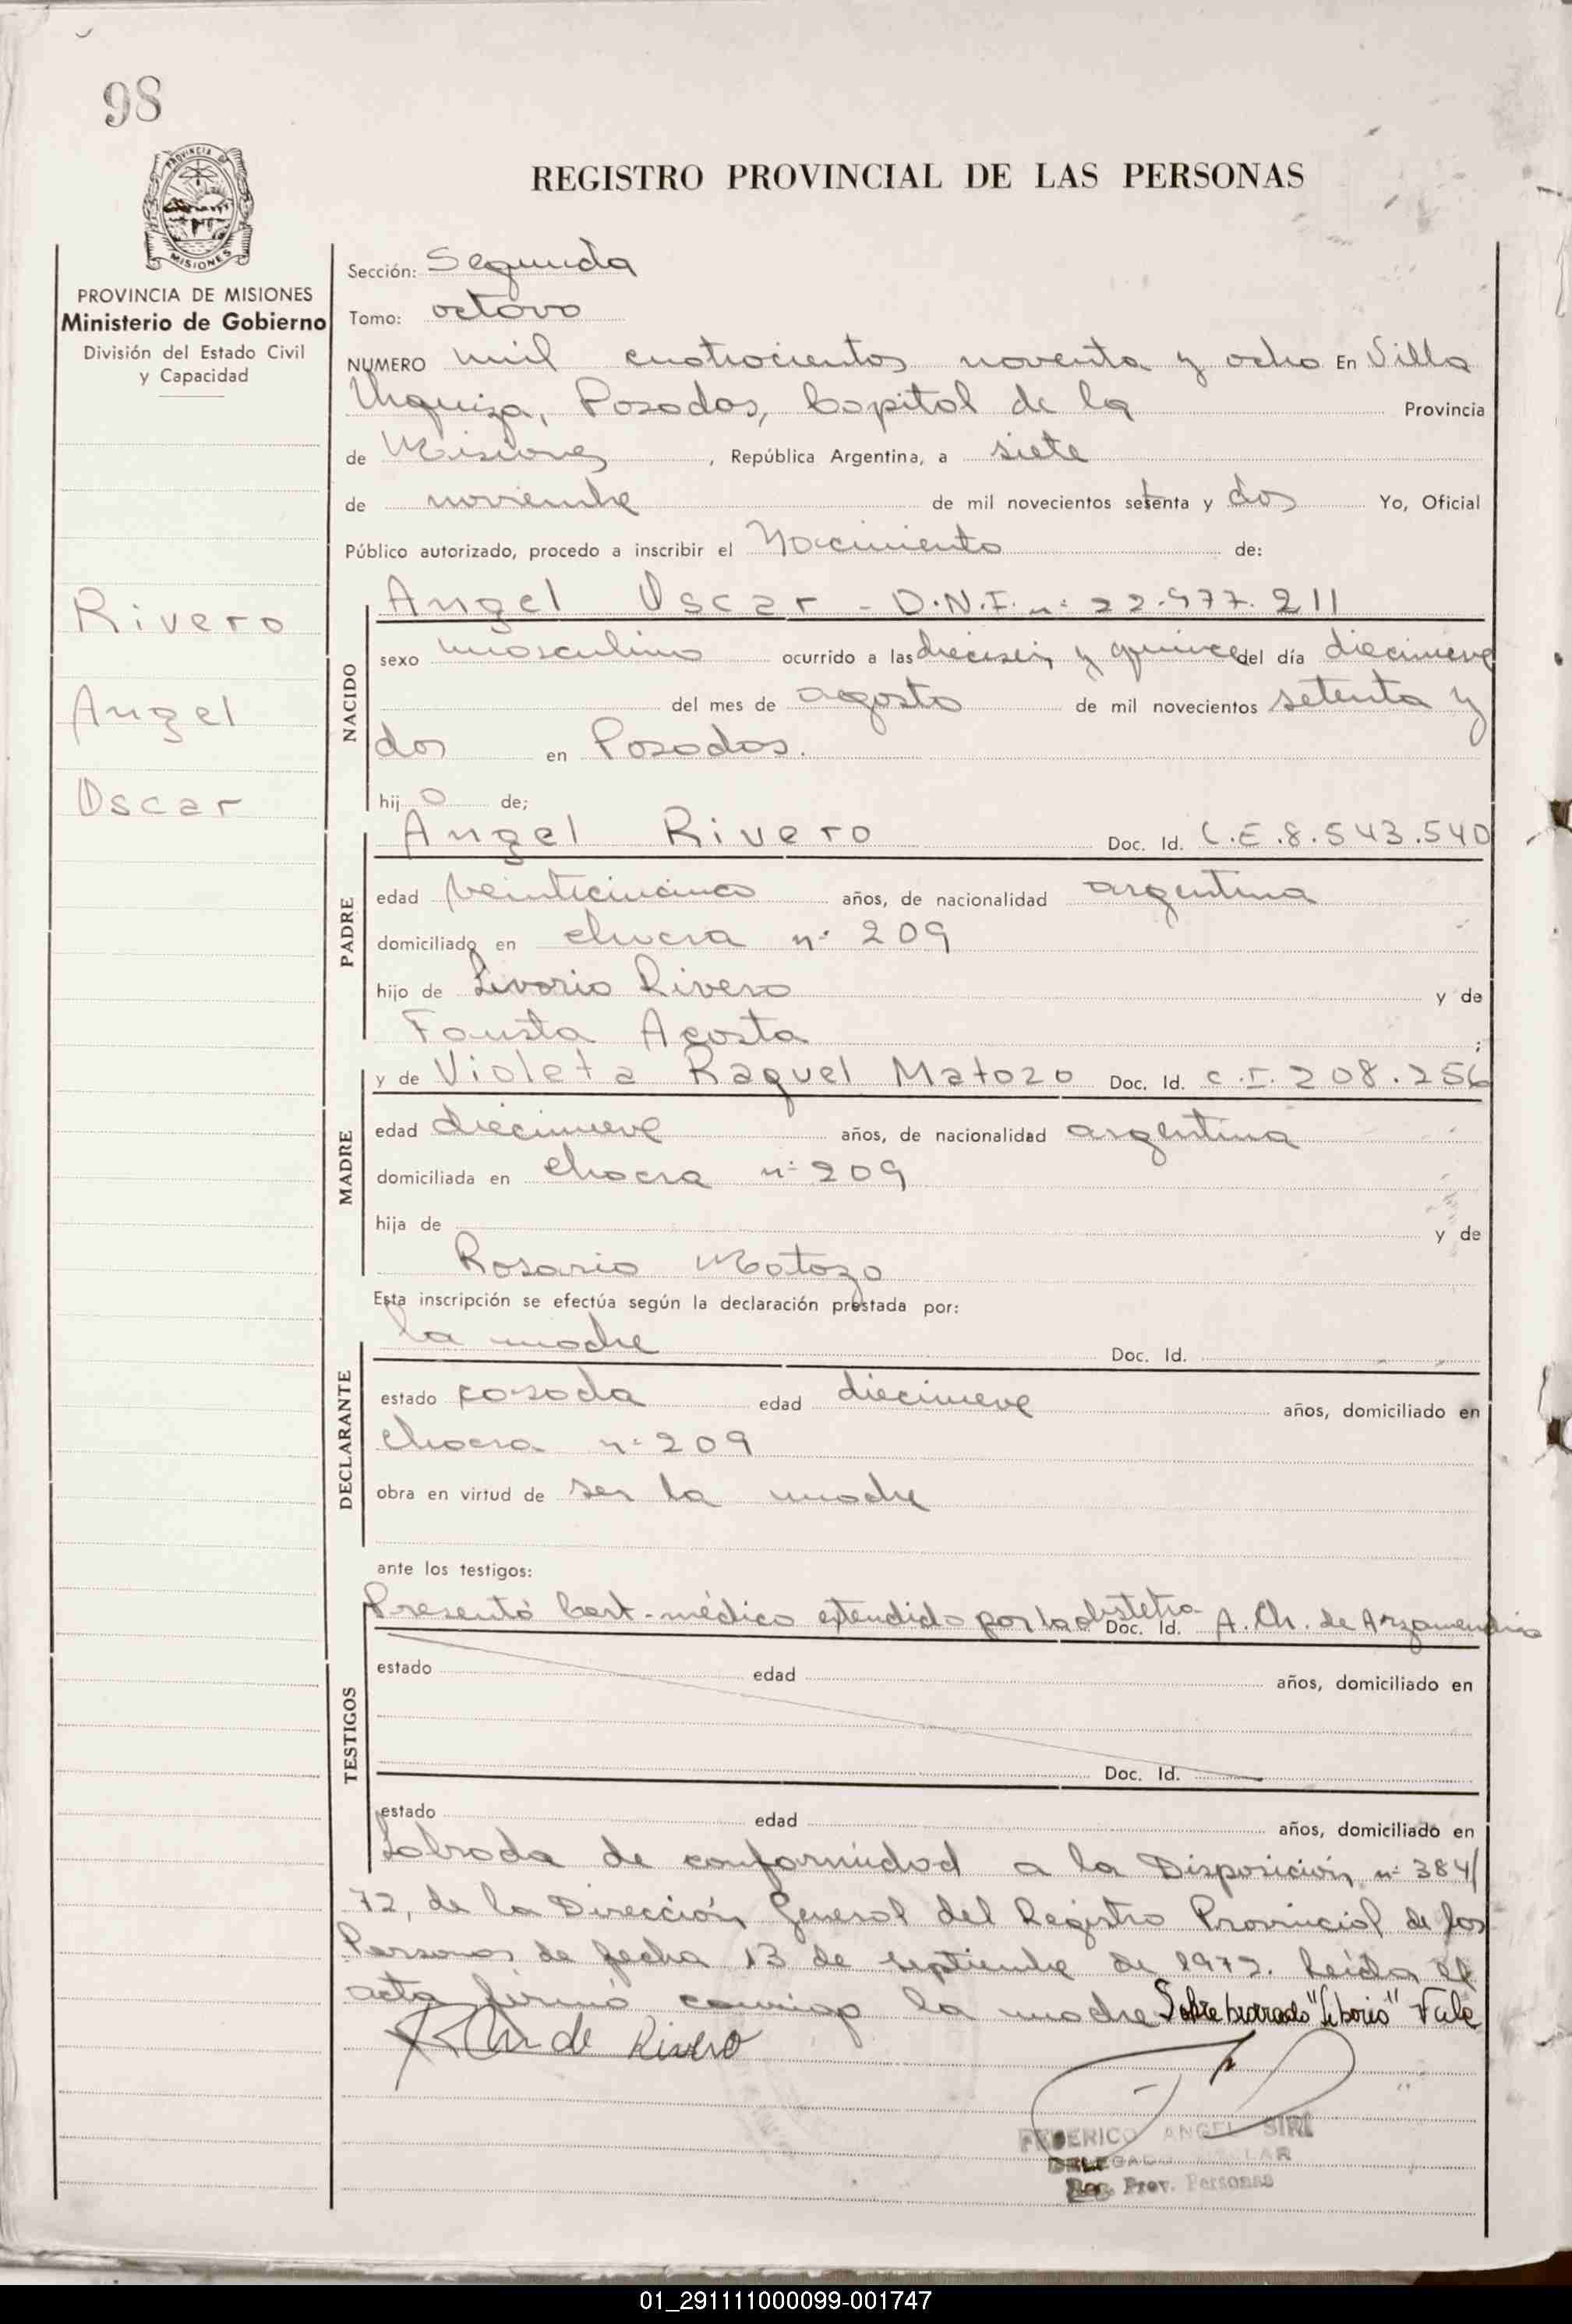 98
PROVINCIA DE
MISIONES
REGISTRO PROVINCIAL DE LAS PERSONAS
PROVINCIA DE MISIONES
Ministerio de Gobierno
División del Estado Civil
y Capacidad
Rivero
Angel
Oscar
Sección: Segunda
Tomo: octavo
NUMERO mil cuatrocientos noventa y ocho En Villa
Urquiza, Posadas, Capital de la Provincia
de Misiones, República Argentina, a siete
de noviembre de mil novecientos setenta y dos Yo, Oficial
Público autorizado, procedo a inscribir el Nacimiento de:
NACIDO
Angel Oscar - D.N.I. nº 22.977.211
sexo masculino ocurrido a las dieciseis y quince del día diecinueve
del mes de agosto de mil novecientos setenta y
dos en Posadas.
hijo de;
PADRE
Angel Rivero Doc. Id. L.E.8.543.540
edad veinticinco años, de nacionalidad argentina
domiciliado en chacra nº 209
hijo de Livorio Rivero y de
Fausta Acosta;
MADRE
y de Violeta Raquel Matozo Doc. Id. C.I. 208.256
edad diecinueve años, de nacionalidad argentina
domiciliada en chacra nº 209
hija de y de
Rosario Matozo
Esta inscripción se efectúa según la declaración prestada por:
DECLARANTE
la madre Doc. Id.
estado casada edad diecinueve años, domiciliado en
chacra nº 209
obra en virtud de ser la madre
ante los testigos:
TESTIGOS
Presentó Cert. médico extendido por la obstetra Doc. Id. A. Ch. de Arzamendia
estado edad años, domiciliado en
Doc. Id.
estado edad años, domiciliado en
Labrada de conformidad a la Disposición nº 384/
72, de la Dirección General del Registro Provincial de las
Personas de fecha 13 de septiembre de 1972. Leída el
acta firmó conmigo la madre Sobre borrado "Liborio" Vale
de Rivero
FEDERICO ANGEL SIRI
DELEGADO TITULAR
Reg. Prov. Personas
01_291111000099-001747